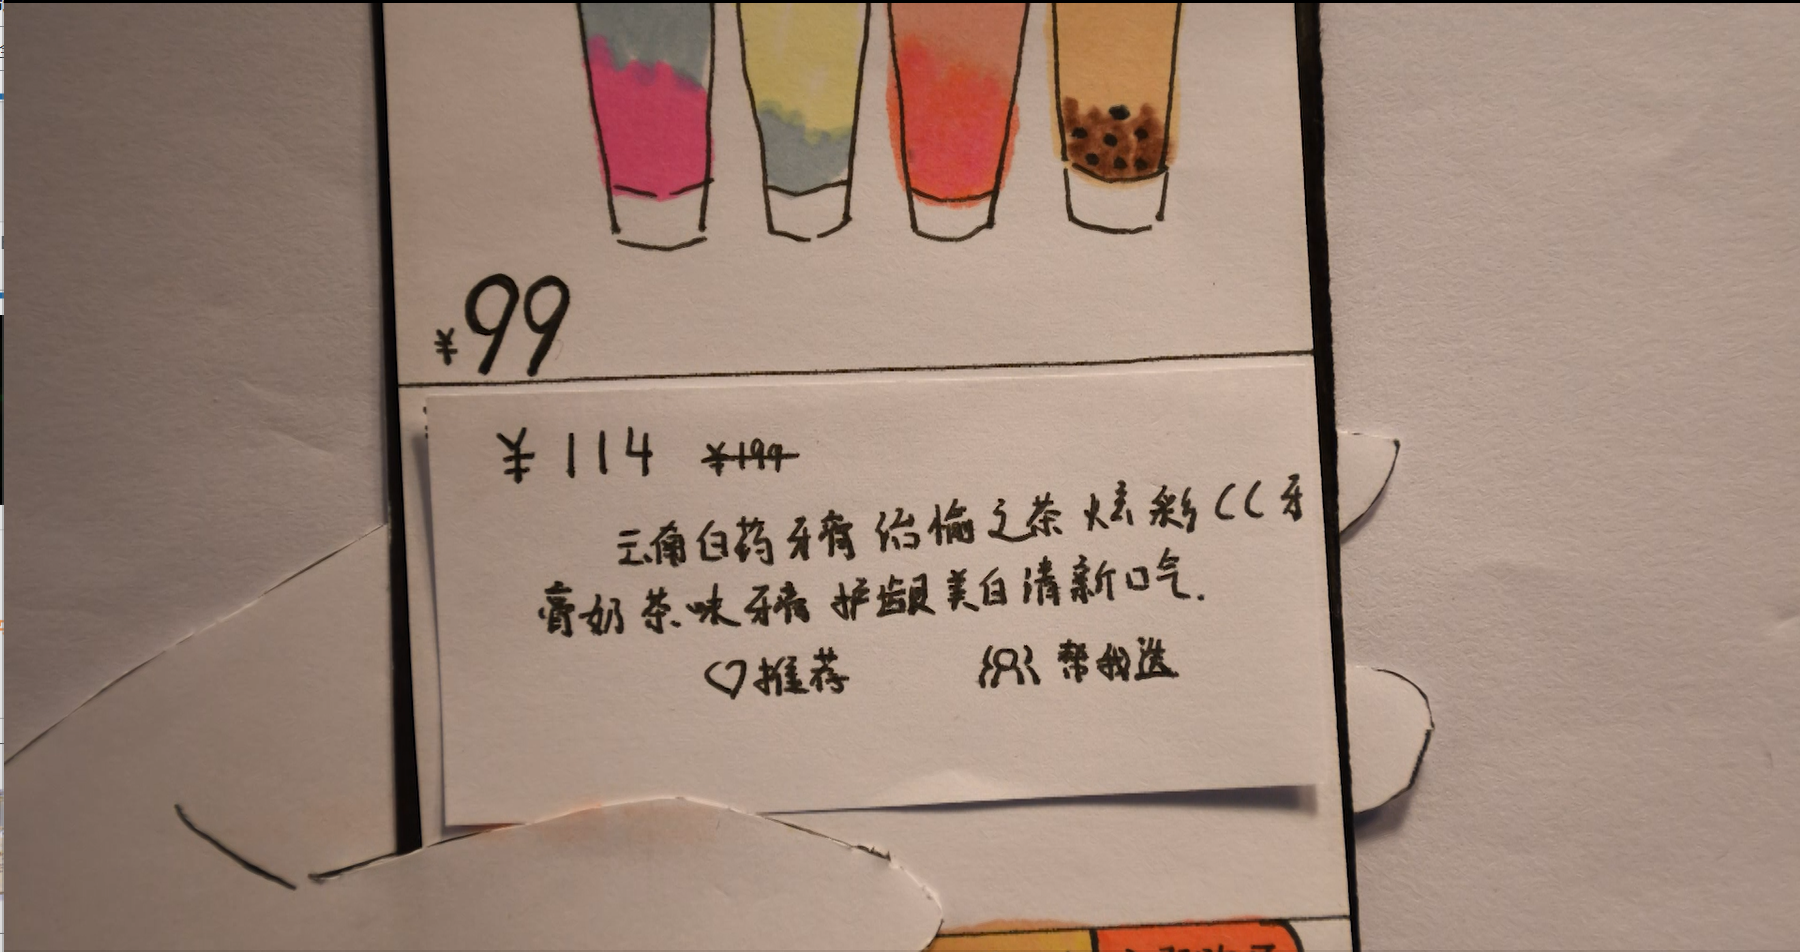 ¥99
¥114 ¥199
云南白药牙膏治愉之茶炫彩CC牙
膏奶茶味牙膏护龈美白清新口气.
推荐 帮我选